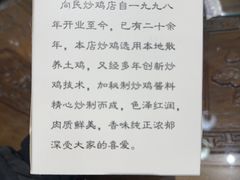 向民炒鸡店自一九九八
年开业至今,已有二十余
年,本店炒鸡选用本地散
养土鸡,又经多年创新炒
鸡技术,加秘制炒鸡酱料
精心炒制而成,色泽红润,
肉质鲜美,香味纯正浓郁
深受大家的喜爱。